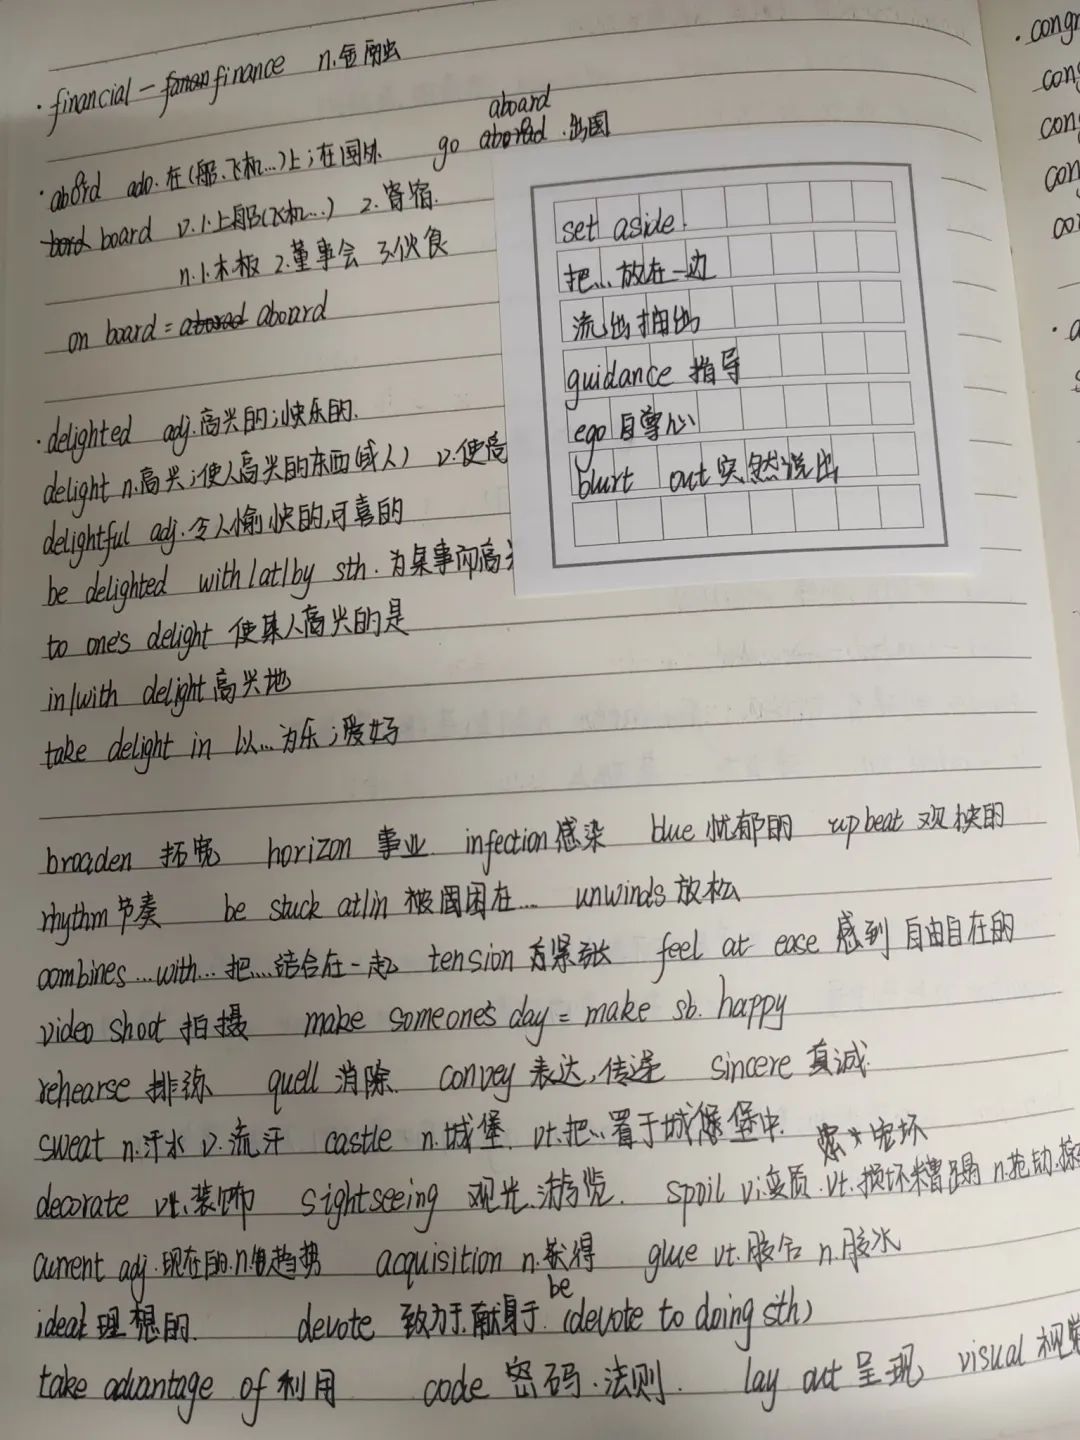 · financial — finance n.金融
aboard
· aboard adv.在(船、飞机…)上;在国外 go aboard.出国
board v.1.上船(飞机…) 2.寄宿.
n.1.木板 2.董事会 3.伙食
on board = aboard
· delighted adj.高兴的;快乐的.
delight n.高兴;使人高兴的东西(或人) v.使高
delightful adj.令人愉快的,可喜的
be delighted with/at/by sth.为某事而高兴
to one's delight 使某人高兴的是
in/with delight 高兴地
take delight in 以…为乐;爱好
set aside.
把…放在一边
流出抽出
guidance 指导
ego 自尊心
blurt out 突然说出
broaden 拓宽 horizon 事业 infection 感染 blue 忧郁的 upbeat 观快的
rhythm 节奏 be stuck at/in 被困在… unwinds 放松
combines …with… 把…结合在一起 tension 紧张 feel at ease 感到自由自在的
video shoot 拍摄 make someone's day = make sb. happy
rehearse 排练 quell 消除 convey 表达,传递 sincere 真诚
sweat n.汗水 v.流汗 castle n.城堡. vt.把…置于城堡中.
宠坏
decorate vt.装饰 sightseeing 观光.游览. spoil vi.变质.vt.损坏糟蹋 n.
current adj.现在的.n.趋势 acquisition n.获得 glue vt.胶合 n.胶水
be
ideal 理想的. devote 致力于.献身于 (devote to doing sth)
take advantage of 利用 code 密码.法则. lay out 呈现 visual 视觉
· congr
con
con
con
co
· a
s